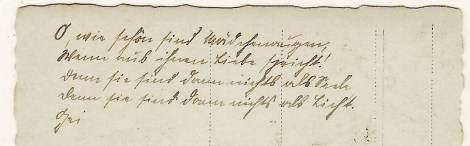 O wie schön sind Mädchenaugen,
Wenn aus ihnen Liebe spricht!
Denn sie sind dann nichts als Seele
Denn sie sind dann nichts als Licht.